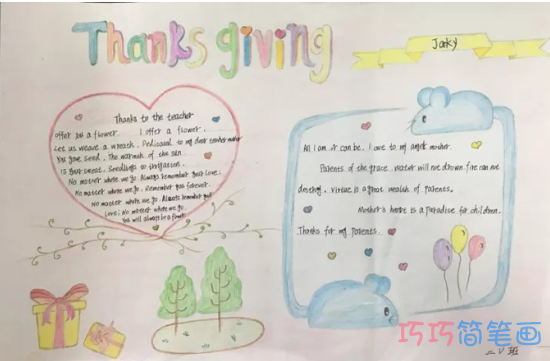 Thanks giving
Jacky
Thanks to the teacher
offer you a flower. I offer a flower.
Let us weave a wreath. Dedicated to my dear teacher
You gave seed. The warmth of the sun
is just sweat. Seedlings to irrigation.
No matter where we go. Always remember your love;
No matter where we go. Remember you forever.
No matter where we go. Always remember your
Love; No matter where we go.
We will always be a
All I am, or can be, I owe to my angel mother.
Parents of the grace, water will not drown, fire can not
destroy. Virtue is a great wealth of parents.
Mother's home is a paradise for children.
Thanks for my parents.
巧巧简笔画
班